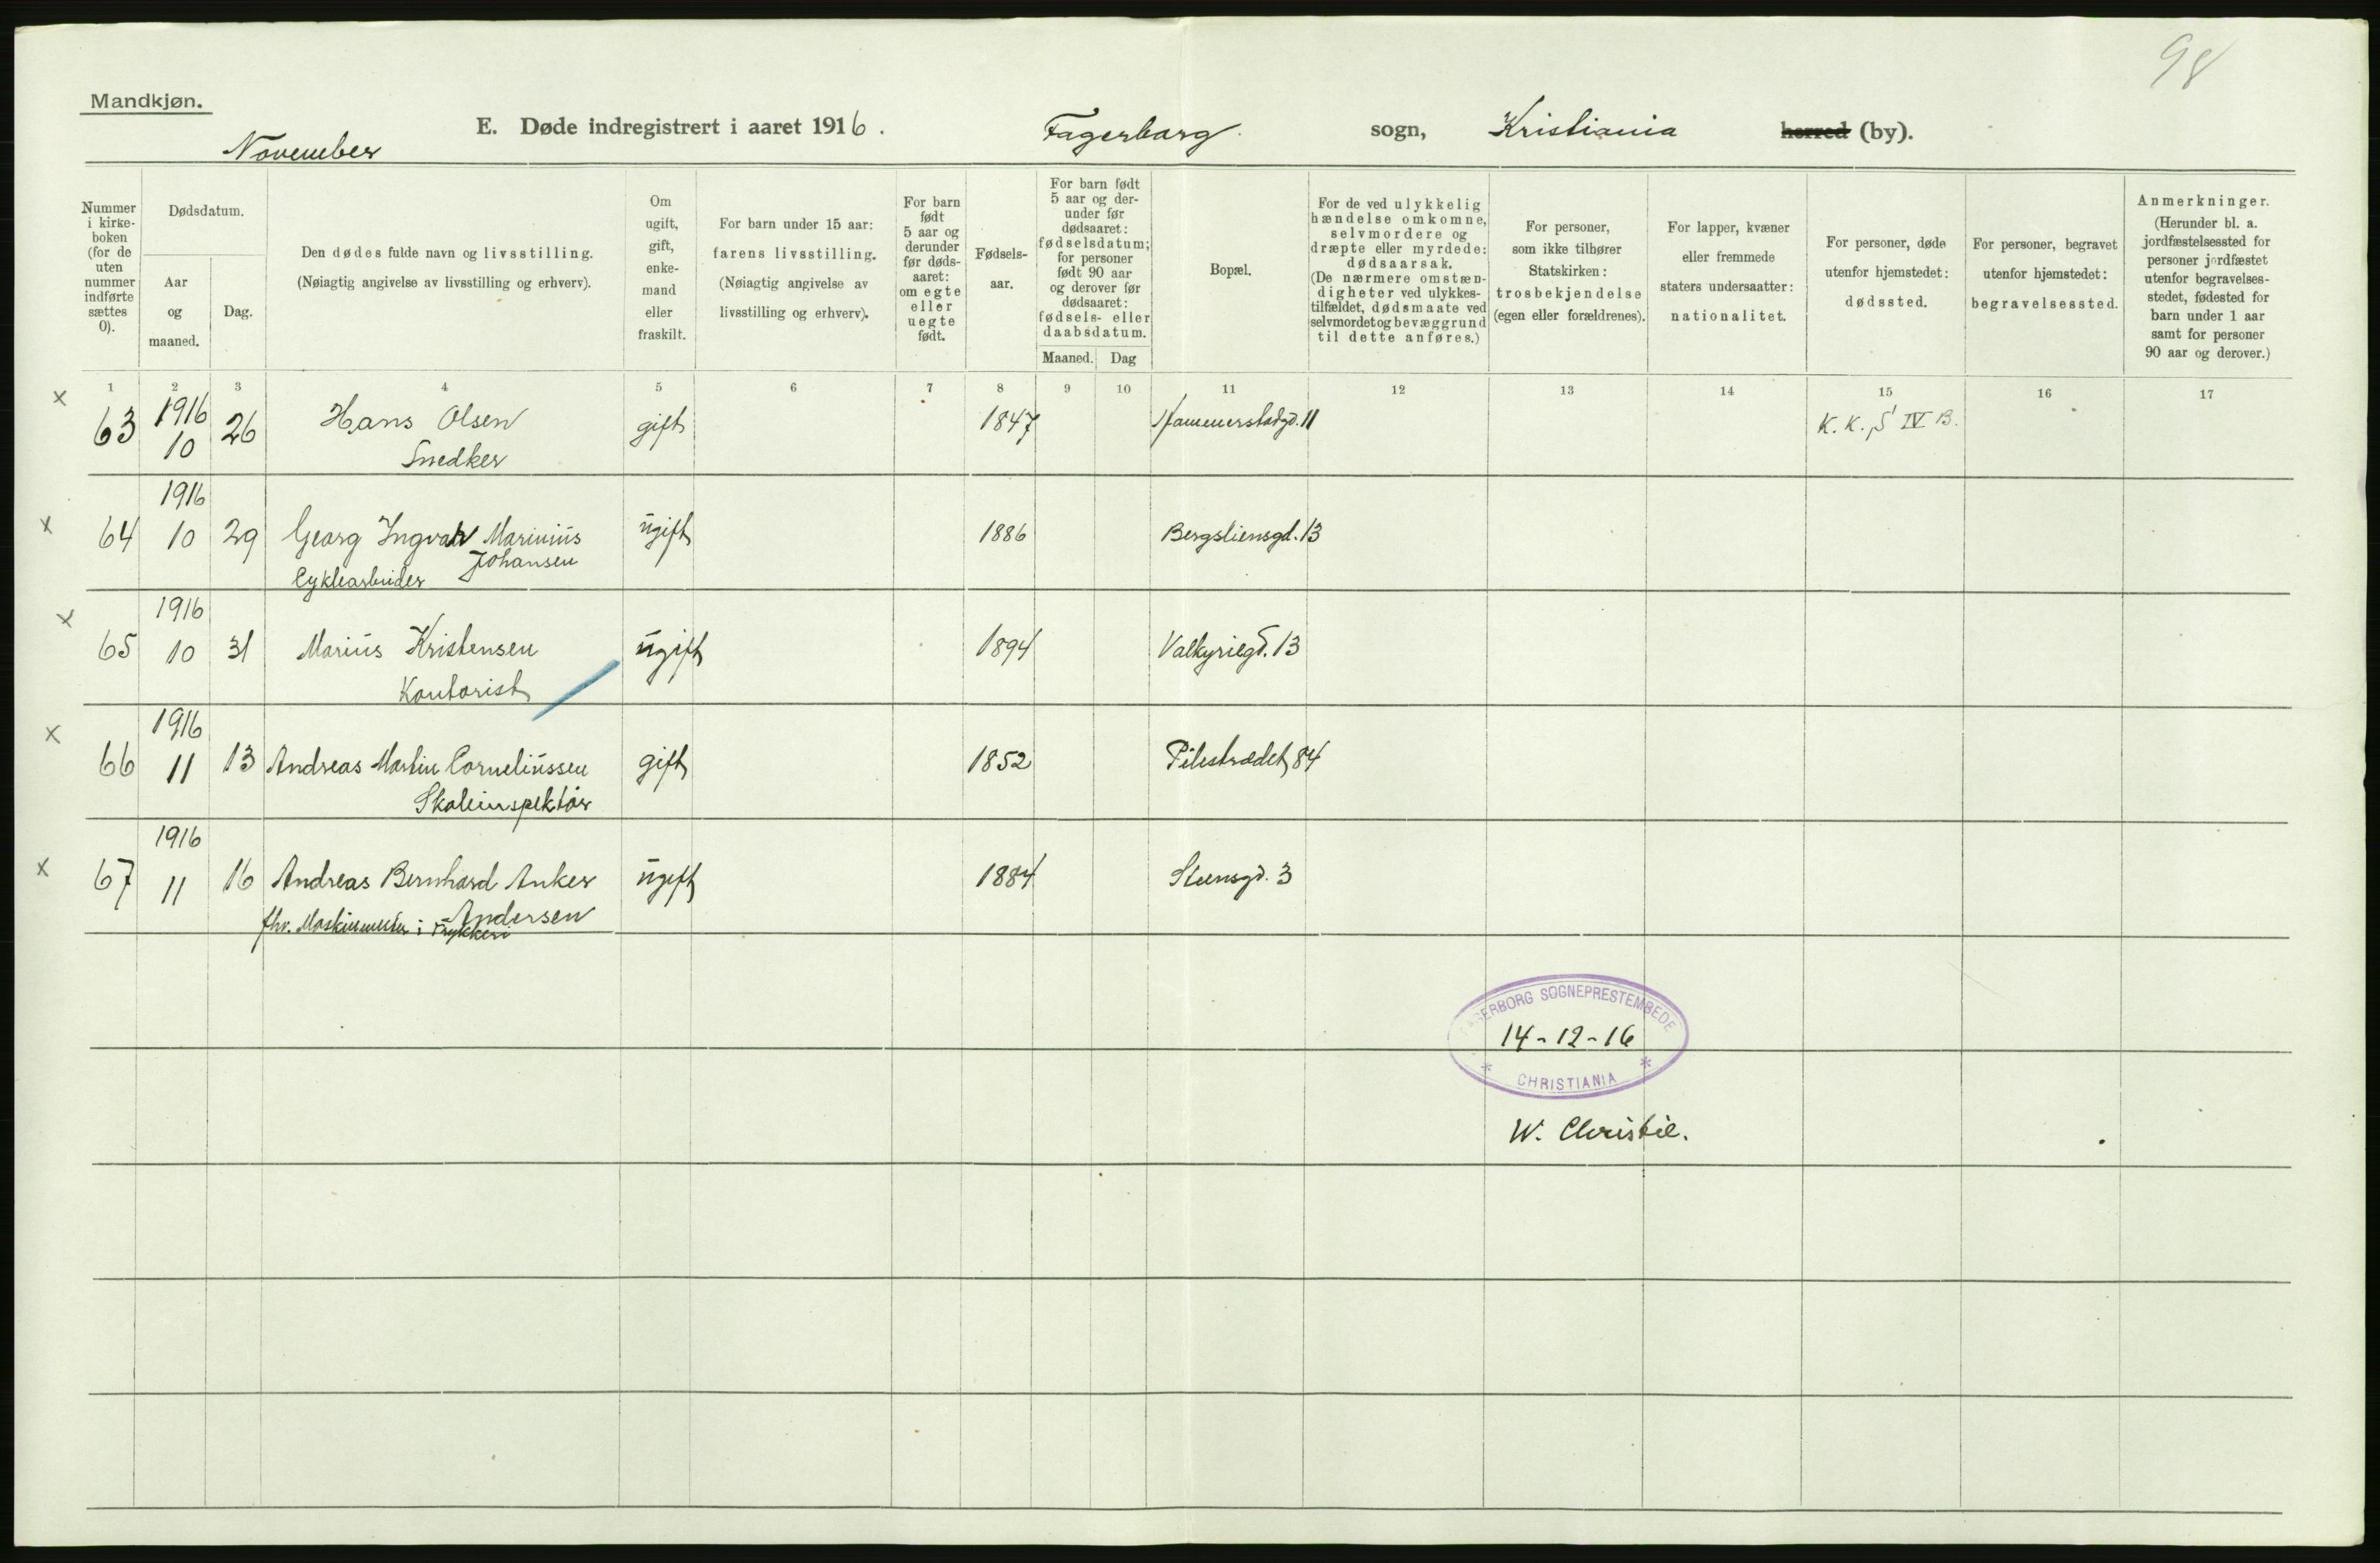 98
Mandkjøn.
E. Døde indregistrert i aaret 1916. Fagerborg sogn, Kristiania herred (by).
November
Nummer i kirke-boken (for de uten nummer indførte sættes 0).
Dødsdatum.
Aar og maaned.
Dag.
Den dødes fulde navn og livsstilling.
(Nøiagtig angivelse av livsstilling og erhverv).
Om ugift, gift, enke-mand eller fraskilt.
For barn under 15 aar: farens livsstilling.
(Nøiagtig angivelse av livsstilling og erhverv).
For barn født 5 aar og derunder før døds-aaret: om egte eller uegte født.
Fødsels-aar.
For barn født 5 aar og der-under før dødsaaret: fødselsdatum; for personer født 90 aar og derover før dødsaaret: fødsels- eller daabsdatum.
Maaned. Dag
Bopæl.
For de ved ulykkelig hændelse omkomne, selvmordere og dræpte eller myrdede: dødsaarsak.
(De nærmere omstæn-digheter ved ulykkes-tilfældet, dødsmaate ved selvmordet og bevæggrund til dette anføres.)
For personer, som ikke tilhører Statskirken: trosbekjendelse (egen eller forældrenes).
For lapper, kvæner eller fremmede staters undersaatter: nationalitet.
For personer, døde utenfor hjemstedet: dødssted.
For personer, begravet utenfor hjemstedet: begravelsessted.
Anmerkninger.
(Herunder bl. a. jordfæstelsessted for personer jordfæstet utenfor begravelses-stedet, fødested for barn under 1 aar samt for personer 90 aar og derover.)
1 2 3 4 5 6 7 8 9 10 11 12 13 14 15 16 17
x 63 1916 10 26 Hans Olsen gift 1847 Hammerstadgd. 11 K. K. S IV B.
Snedker
x 64 1916 10 29 Georg Ingvar Marinius ugift 1886 Bergsliensgd. 13
Johansen
Cyklearbeider
x 65 1916 10 31 Marius Kristensen ugift 1894 Valkyriegd. 13
Kontorist
x 66 1916 11 13 Andreas Martin Corneliussen gift 1852 Pilestrædet 84
Skoleinspektör
x 67 1916 11 16 Andreas Bernhard Anker ugift 1884 Steensgd. 3
Andersen
fhv. Maskinmester i Trykkeri
FAGERBORG SOGNEPRESTEMBEDE
14-12-16
* CHRISTIANIA *
W. Christie.